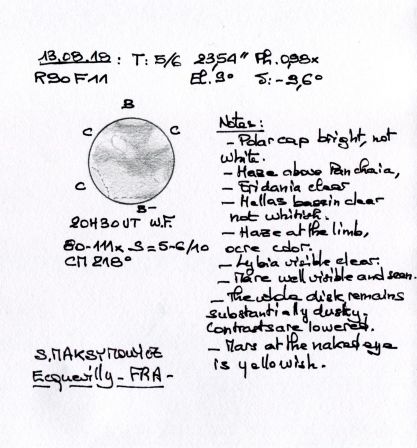 13.08.18 : T: 5/6 23,54" Ph. 0,98x
R90 F11 El. 9° S: -9,6°
B
C C
C
B-
20H30 UT W.F.
80-111x S=5-6/10
CM 218°
Notes:
- Polar cap bright, not
white.
- Haze above Panchaia,
- Eridania clear
- Hellas bassin clear
not whitish.
- Haze at the limb,
ocre color.
- Lybia visible clear.
- Mare well visible and seen.
- The whole disk remains
substantially dusty,
Contrasts are lowered.
- Mars at the naked eye
is yellowish.
S.MAKSYMOWICZ
Ecquevilly - FRA -